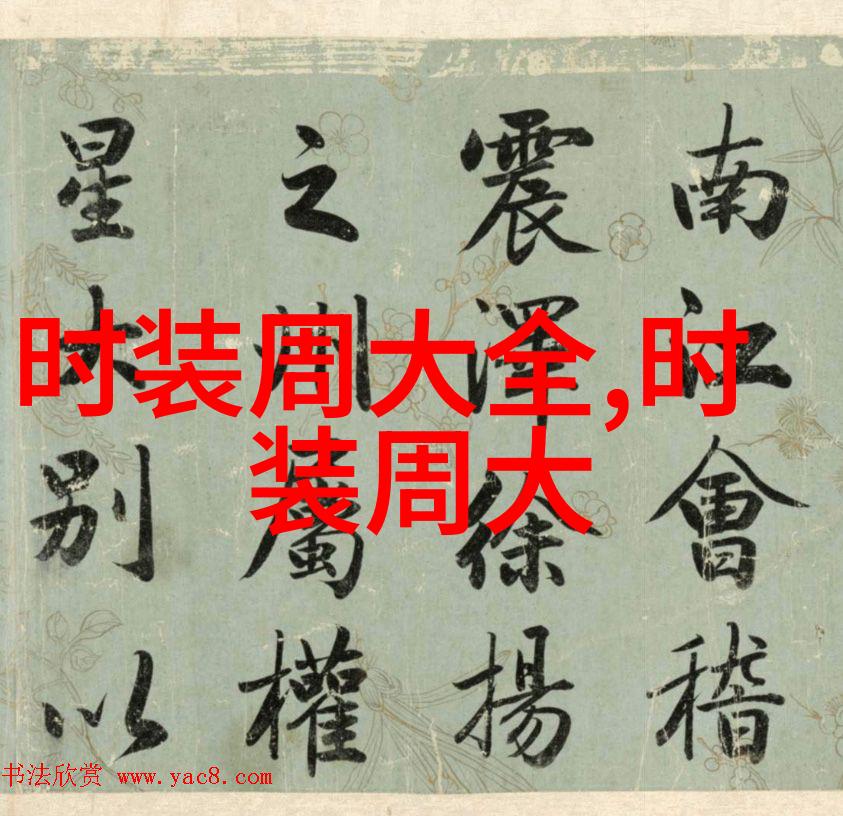 南江會稽
震澤徐揚
之州屬權
星大別以
时装周大全,时
装周大
书法欣赏 www.yac8.com